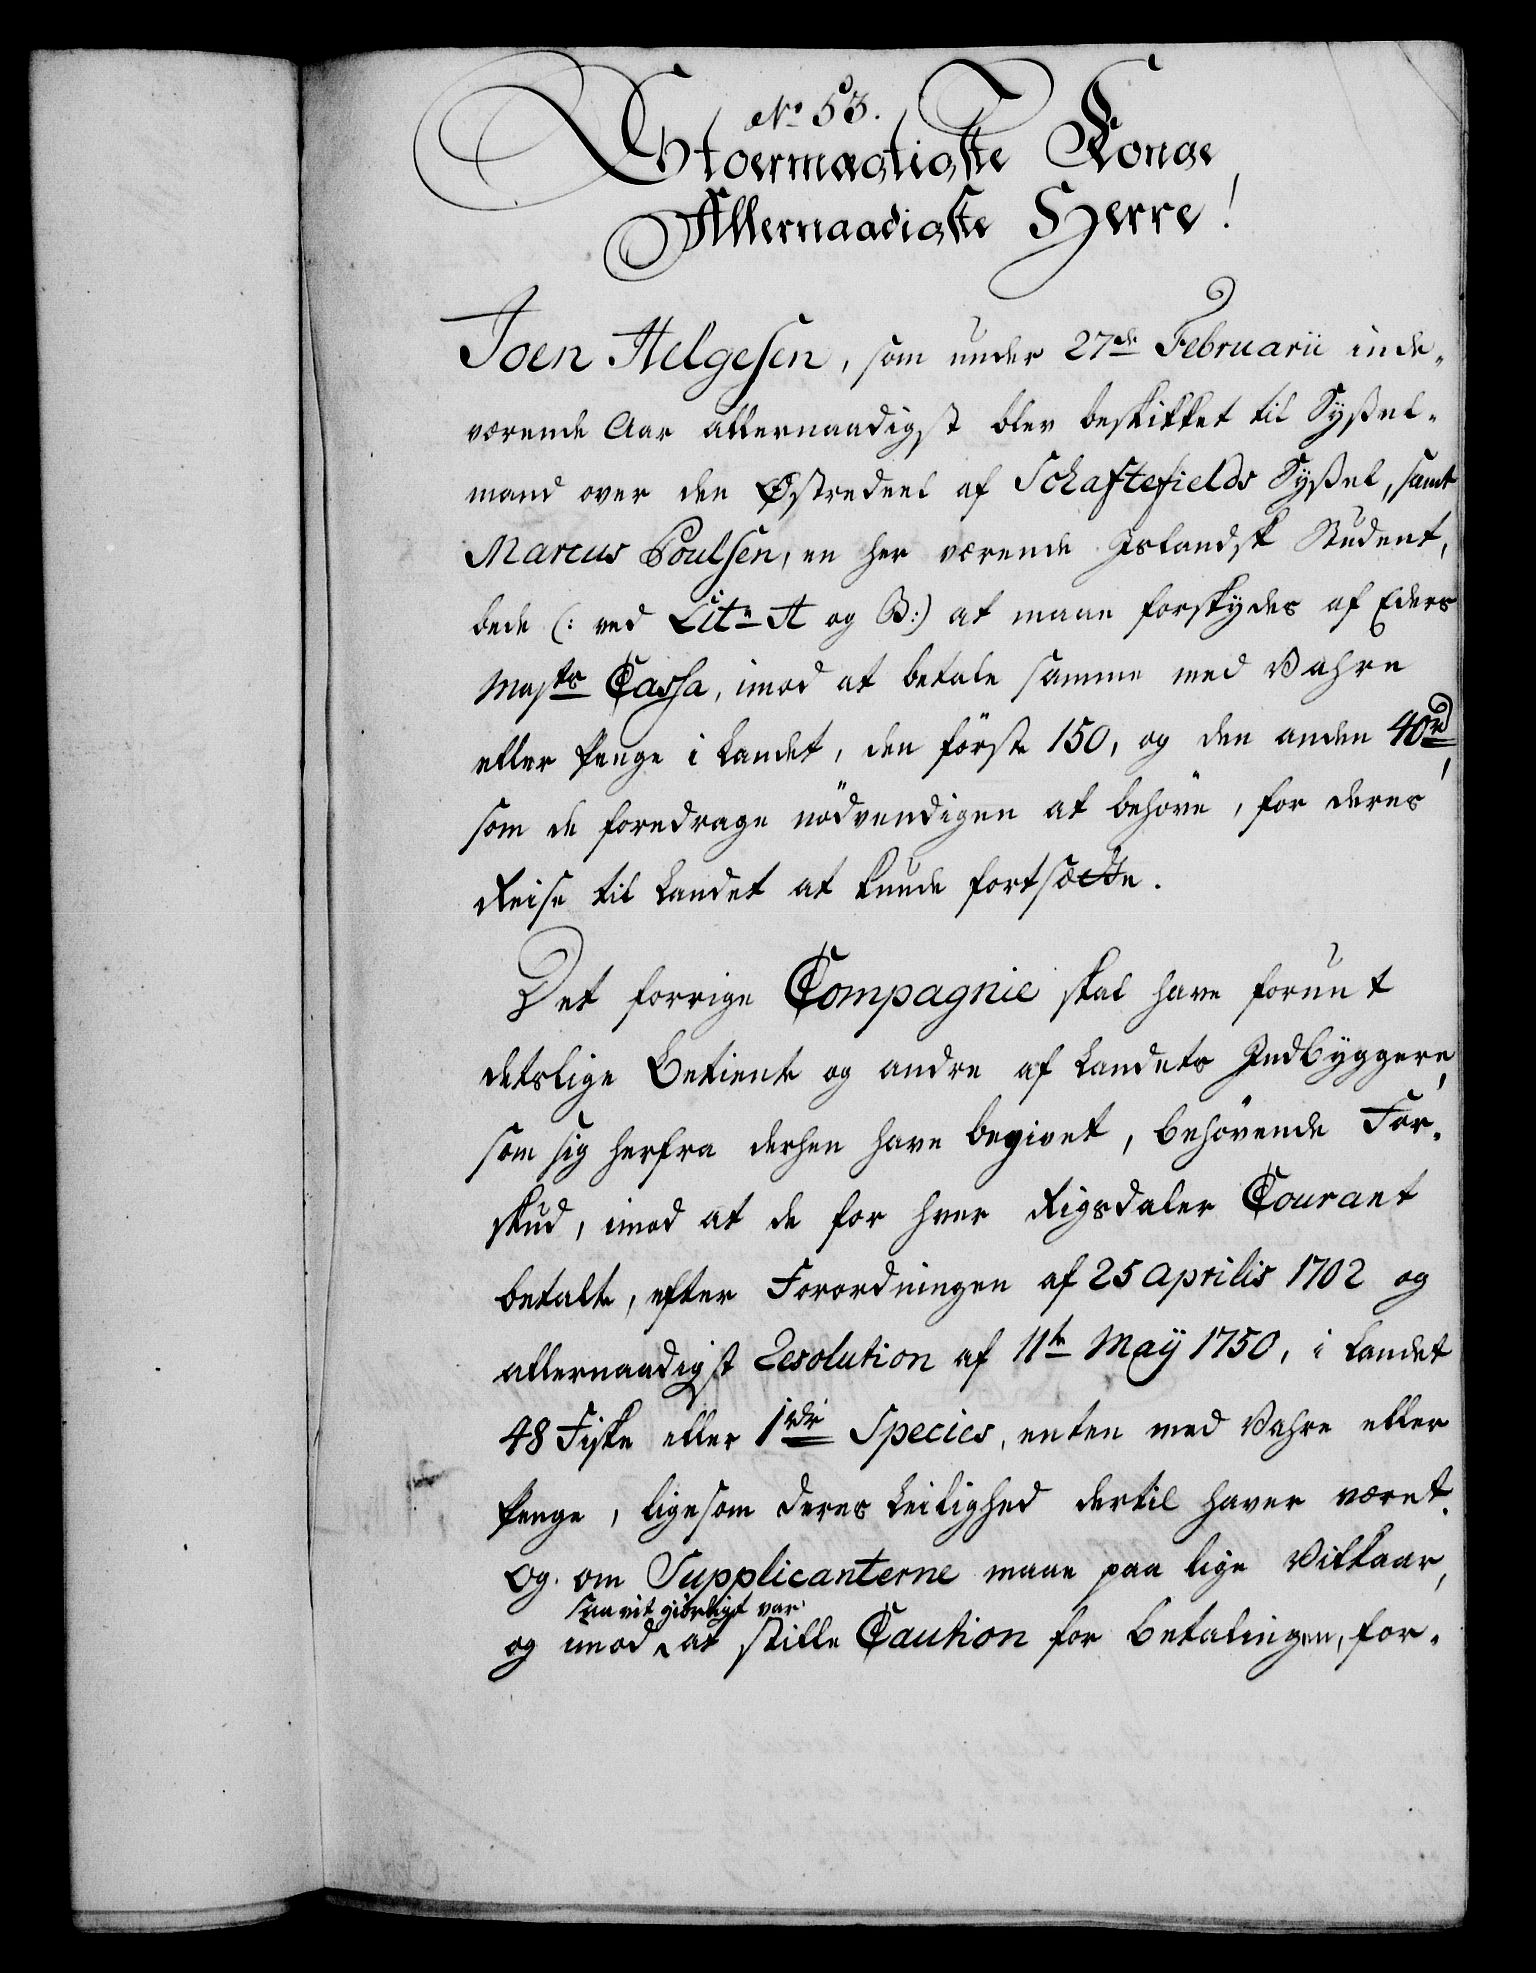 No 53.
Stormægtigste Konge
Allernaadigste Herre!
Joen Helgesen, som under 27de Februarii inde-
værende Aar allernaadigst blev beskikket til Syssel-
mand over den Østredeel af Schaftefields Syssel, samt
Marcus Poulsen, en her værende Islandsk Student,
bede (: ved Litr A og B:) at maae forskydes af Eders
Majts Cassa, imod at betale samme med Vahre
eller Penge i Landet, den förste 150, og den anden 40rd,
som de foredrage nödvendigen at behöve, for deres
Reise til Landet at kunde fortsætte.
Det forrige Compagnie skal have forunt
detslige Betiente og andre af Landets Indbyggere,
som sig herfra derhen have begivet, behövende For-
skud, imod at de for hver Rigsdaler Courant
betalte, efter Forordningen af 25 Aprilis 1702 og
allernaadigst Resolution af 11te Maÿ 1750, i Landet
48 Fiske eller 1rdr Species, enten med Vahre eller
Penge, ligesom deres Leilighed dertil haver været.
Og om Supplicanterne maae paa lige Vilkaar,
saavit giörligt var
og imod at stille Caution for Betalingen, for-